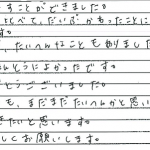 すことができました。
比べて、だいぶかわったことに
す。
、たいへんなことも有りました
んとうによかったです。
とうございました。
も、まだまだたいへんかと思い
きたいと思います。
しくお願いします。